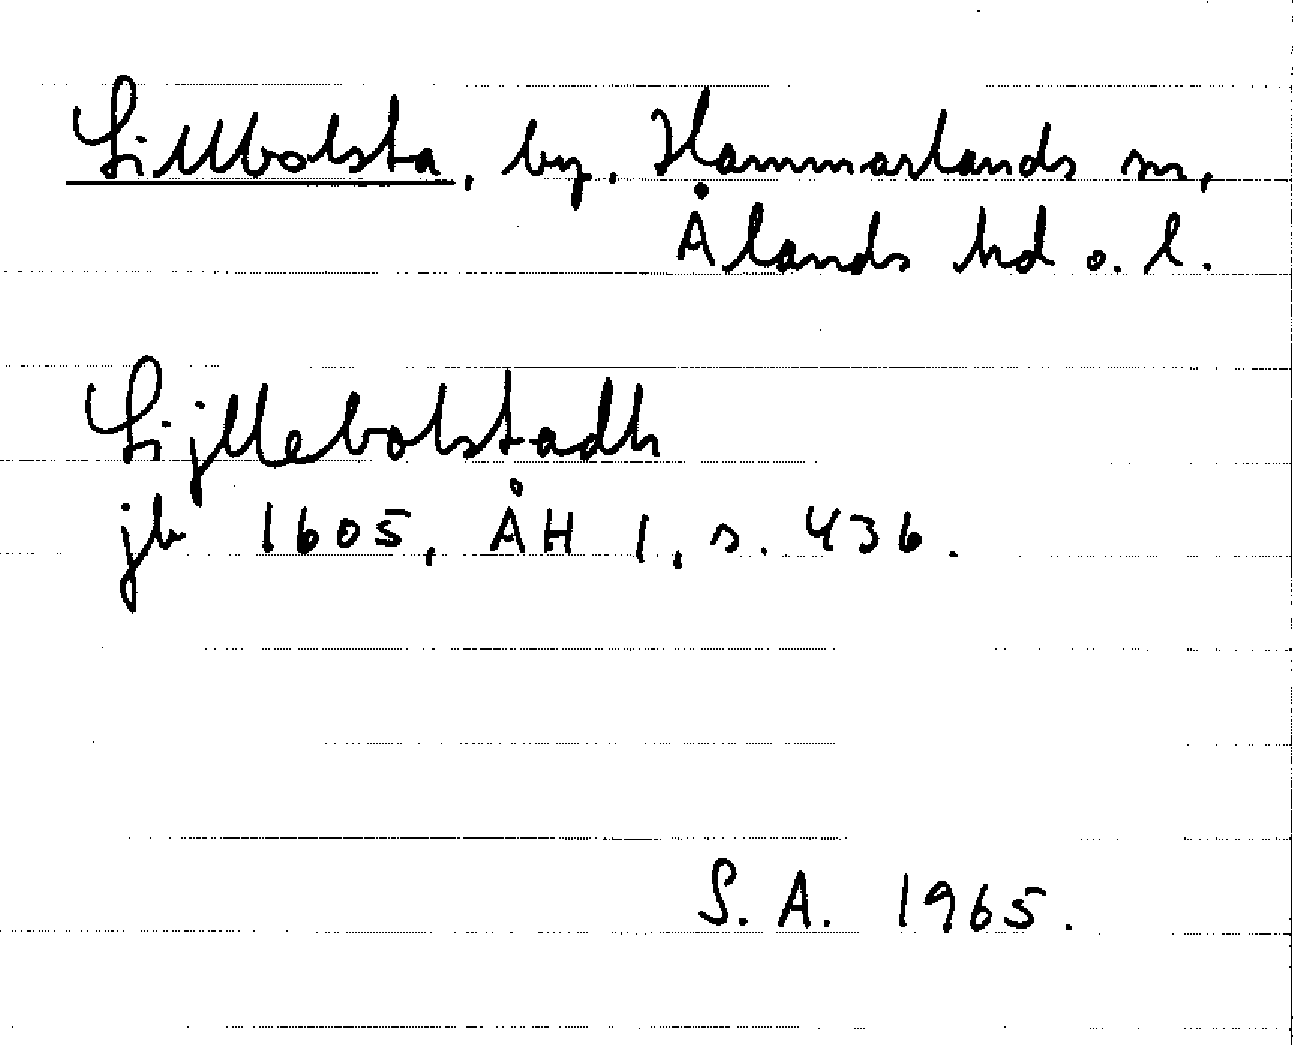 Lillbolsta, by, Hammarlands sn,
Ålands hd o. l.
Lijllebolstadh
jb 1605, ÅH 1, s. 436.
S. A. 1965.